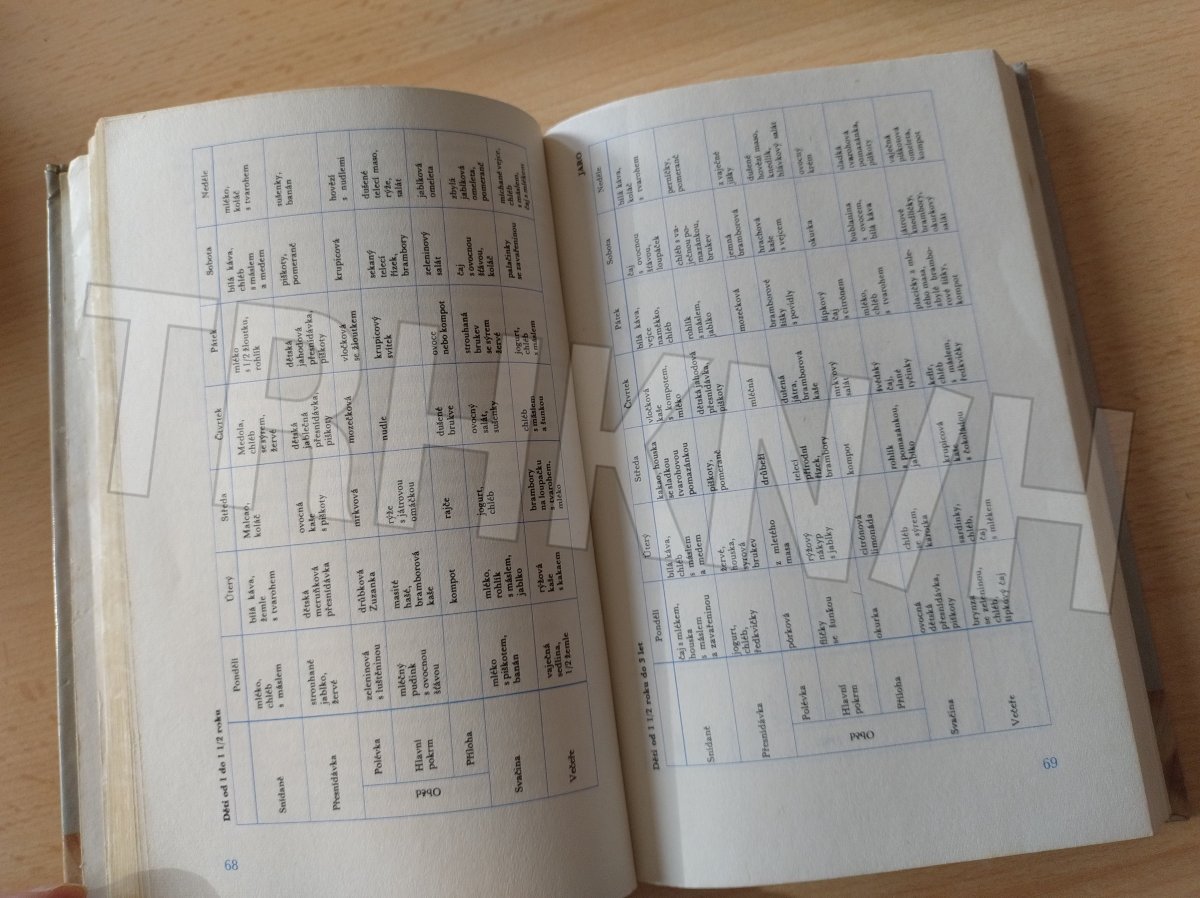 Děti od 1 do 1 1/2 roku
Pondělí
Úterý
Středa
Čtvrtek
Pátek
Sobota
Neděle
Snídaně
mléko,
chléb
s máslem
bílá káva,
žemle
s tvarohem
Malcao,
koláč
Medola,
chléb
se sýrem,
žervé
mléko
s 1/2 žloutku,
rohlík
bílá káva,
chléb
s máslem
a medem
mléko,
koláč
s tvarohem
Přesnídávka
strouhané
jablko,
žervé
dětská
meruňková
přesnídávka
ovocná
kaše
s piškoty
dětská
jablečná
přesnídávka,
piškoty
dětská
jahodová
přesnídávka,
piškoty
piškoty,
pomeranč
sušenky,
banán
Oběd
Polévka
zeleninová
s luštěninou
drůbková
Zuzanka
mrkvová
mozečková
vločková
se žloutkem
krupicová
hovězí
s nudlemi
Hlavní
pokrm
mléčný
pudink
s ovocnou
šťávou
masité
haše,
bramborová
kaše
rýže
s játrovou
omáčkou
nudle
krupicový
svítek
sekaný
telecí
řízek,
brambory
dušené
telecí maso,
rýže,
salát
Příloha
kompot
rajče
dušené
brukve
ovoce
nebo kompot
zeleninový
salát
jablková
omeleta
Svačina
mléko
s piškotem,
banán
mléko,
rohlík
s máslem,
jablko
jogurt,
chléb
ovocný
salát,
sušenky
strouhaná
brukev
se sýrem
žervé
čaj
s ovocnou
šťávou,
koláč
zbylá
jablková
omeleta,
pomeranč
Večeře
vaječná
sedlina,
1/2 žemle
rýžová
kaše
s kakaem
brambory
na loupačku
s tvarohem,
mléko
chléb
s máslem
a šunkou
jogurt,
chléb
s máslem
palačinky
se zavařeninou
míchané vejce,
chléb
s máslem,
čaj s mlékem
68
JARO
Děti od 1 1/2 roku do 3 let
Pondělí
Úterý
Středa
Čtvrtek
Pátek
Sobota
Neděle
Snídaně
čaj s mlékem,
houska
s máslem
a zavařeninou
bílá káva,
chléb
s máslem
a medem
kakao, houska
se sladkou
tvarohovou
pomazánkou
vločková
kaše
s kompotem,
mléko
bílá káva,
vejce
naměkko,
chléb
čaj
s ovocnou
šťávou,
loupáček
bílá káva,
koláč
s tvarohem
Přesnídávka
jogurt,
chléb,
ředkvičky
žervé,
houska,
syrová
brukev
piškoty,
pomeranč
dětská jahodová
přesnídávka,
piškoty
rohlík
s máslem,
jablko
chléb s va-
ječnou po-
mazánkou,
brukev
perníčky,
pomeranč
Oběd
Polévka
pórková
z mletého
masa
drůbeží
mléčná
mozečková
jemná
bramborová
s vaječné
jíšky
Hlavní
pokrm
flíčky
se šunkou
rýžový
nákyp
s jablky
telecí
přírodní
řízek,
brambory
dušená
játra,
bramborová
kaše
bramborové
šišky
s povidly
hrachová
kaše
s vejcem
dušené
hovězí maso,
knedlík,
hlávkový salát
Příloha
okurka
citrónová
limonáda
kompot
mrkvový
salát
šípkový
čaj
s citrónem
okurka
ovocný
krém
Svačina
ovocná
dětská
přesnídávka,
piškoty
chléb
se sýrem,
karotka
rohlík
s pomazánkou,
jablko
švédský
čaj,
slané
tyčinky
mléko,
chléb
s tvarohem
bublanina
s ovocem,
bílá káva
sladká
tvarohová
pomazánka,
piškoty
Večeře
brynza
se zeleninou,
chléb,
šípkový čaj
sardinky,
chléb,
čaj
s mlékem
krupicová
kaše
s čokoládou
kefír,
chléb
s máslem,
ředkvičky
placičky z mle-
tého masa,
zbylé brambo-
rové šišky,
kompot
játrové
knedlíčky,
brambory,
okurkový
salát
vaječná
piškotová
omeleta,
kompot
69
TRHKNIH